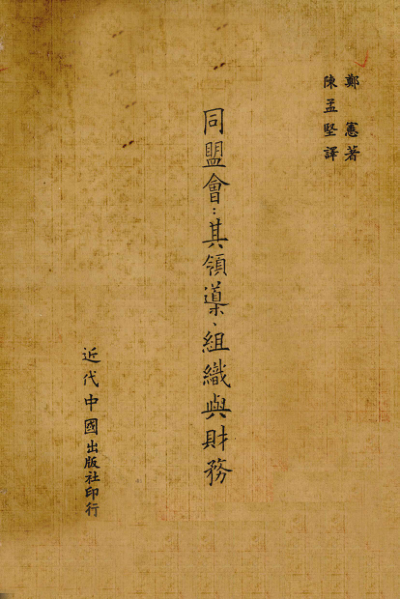 鄭憲著
陳孟堅譯
同盟會:其領導、組織與財務
近代中國出版社印行